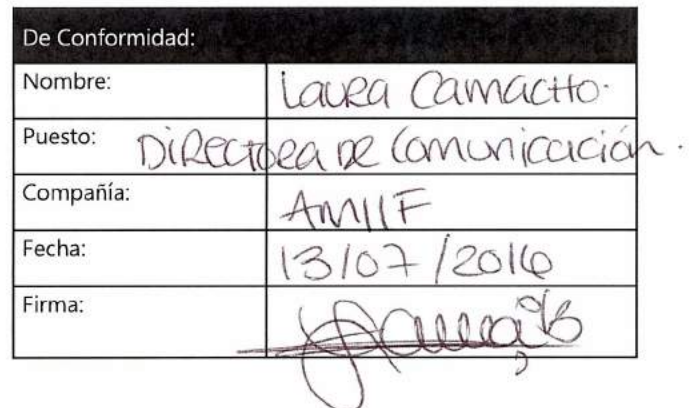 De Conformidad:
Nombre: Laura Camacho.
Puesto: Directora de Comunicación.
Compañía: AMIIF
Fecha: 13/07/2016
Firma: